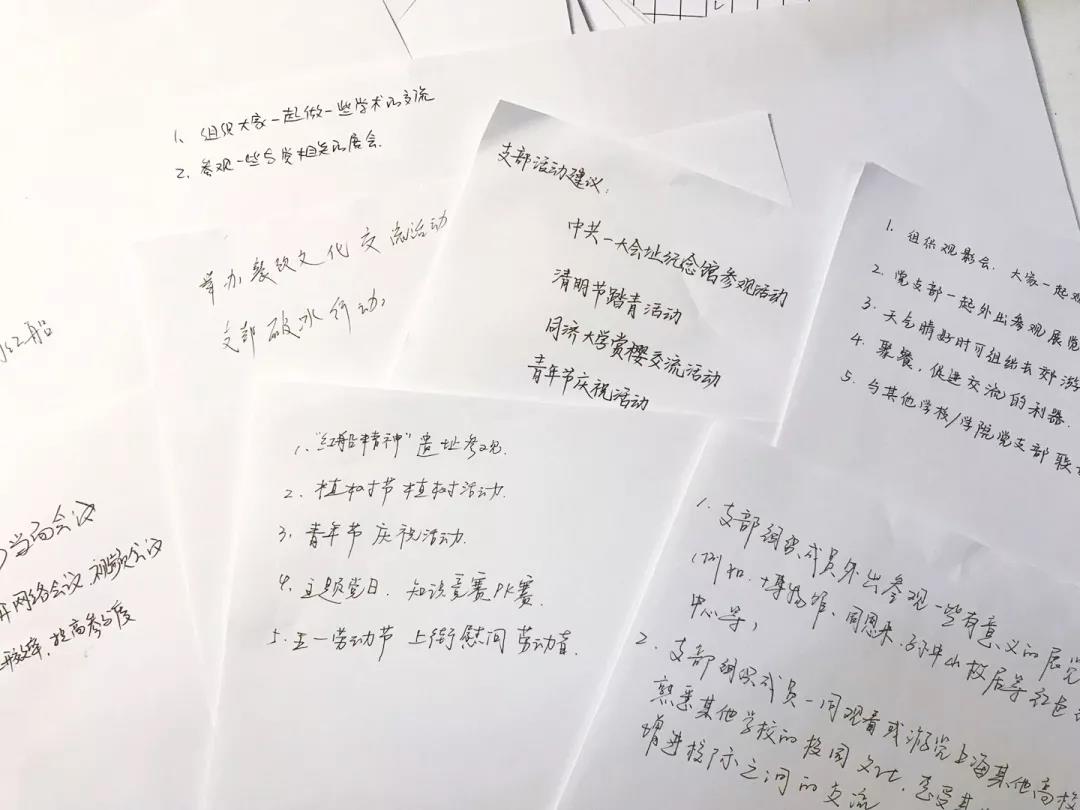 1、组织大家一起做一些学术的交流
2、参观一些与党相关的展会.
举办餐饮文化交流活动
支部破冰行动
支部活动建议:
中共一大会址纪念馆参观活动
清明节踏青活动
同济大学赏樱交流活动
青年节庆祝活动
1. 组织观影会, 大家一起观
2. 党支部一起外出参观展览
3. 天气晴好时可组织去郊游
4. 聚餐, 促进交流的利器.
5. 与其他学校/学院党支部联
红船
会议
开网络会议 视频会议
效率, 提高参与度
1、"红船精神"遗址参观.
2、植树节 植树活动.
3、青年节 庆祝活动.
4、主题党日、知识竞赛PK赛.
5、五一劳动节 上街慰问劳动者.
1、支部组织成员外出参观一些有意义的展览
(例如、博物馆、周恩来、孙中山故居等红色
中心等)
2、支部组织成员一同观看或游览上海其他高校
熟悉某他学校的校园文化, 感受其
增进校际之间的交流